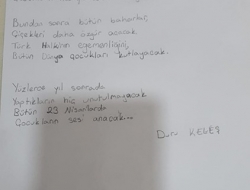 Bundan sonra bütün baharlar,
Çiçekleri daha özgür açacak.
Türk Halkının egemenliğini,
Bütün Dünya çocukları kutlayacak.
Yüzlerce yıl sonrada
Yaptıkların hiç unutulmayacak
Bütün 23 Nisanlarda
Çocukların sesi anacak...
Duru KELEŞ